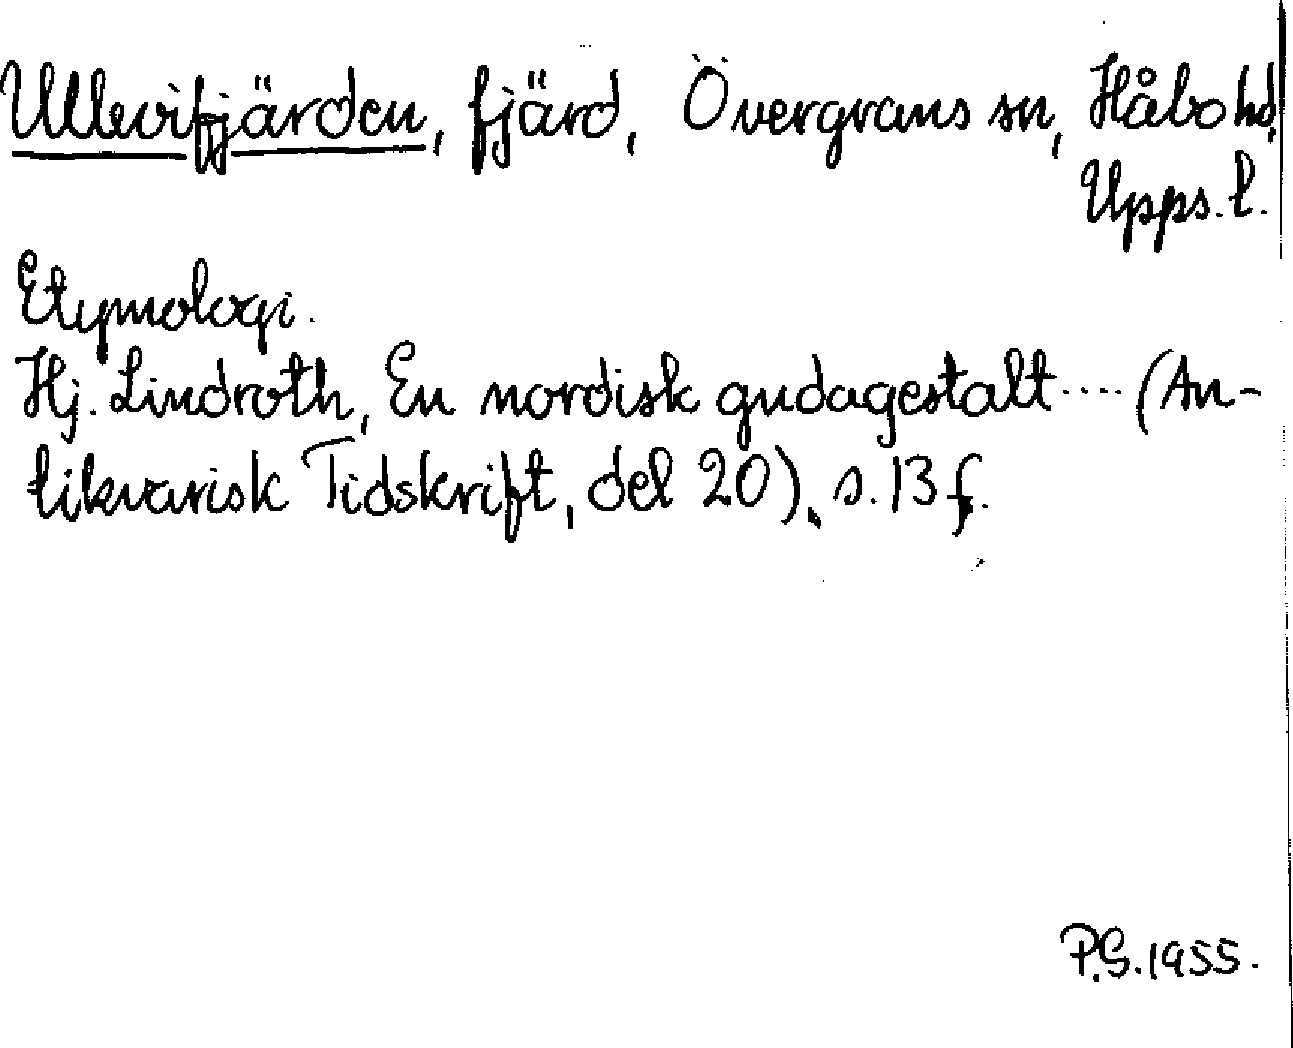 Ullevifjärden, fjärd, Övergrans sn, Håbo hd,
Upps. l.
Etymologi.
Hj. Lindroth, En nordisk gudagestalt .... (An-
tikvarisk Tidskrift, del 20), s. 13 f.
P.S. 1955.